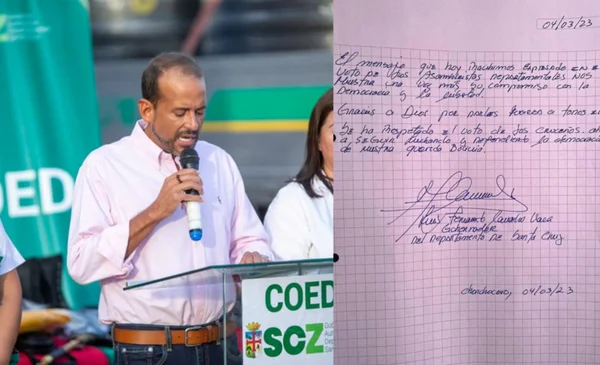 SCZ
COED
COED
SCZ
04/03/23
El mensaje que hoy recibimos expresado en e
voto de los Asambleistas departamentales nos
muestra una vez mas su compromiso con la
Democracia y la libertad.
Gracias a Dios por
Se ha Respetado el voto de los cruceños. ah
a seguir luchando y defendiendo la democracia
de nuestra querida Bolivia.
Luis Fernando Camacho Vaca
Gobernador
Del Departamento de Santa Cruz
Chonchocoro, 04/03/23